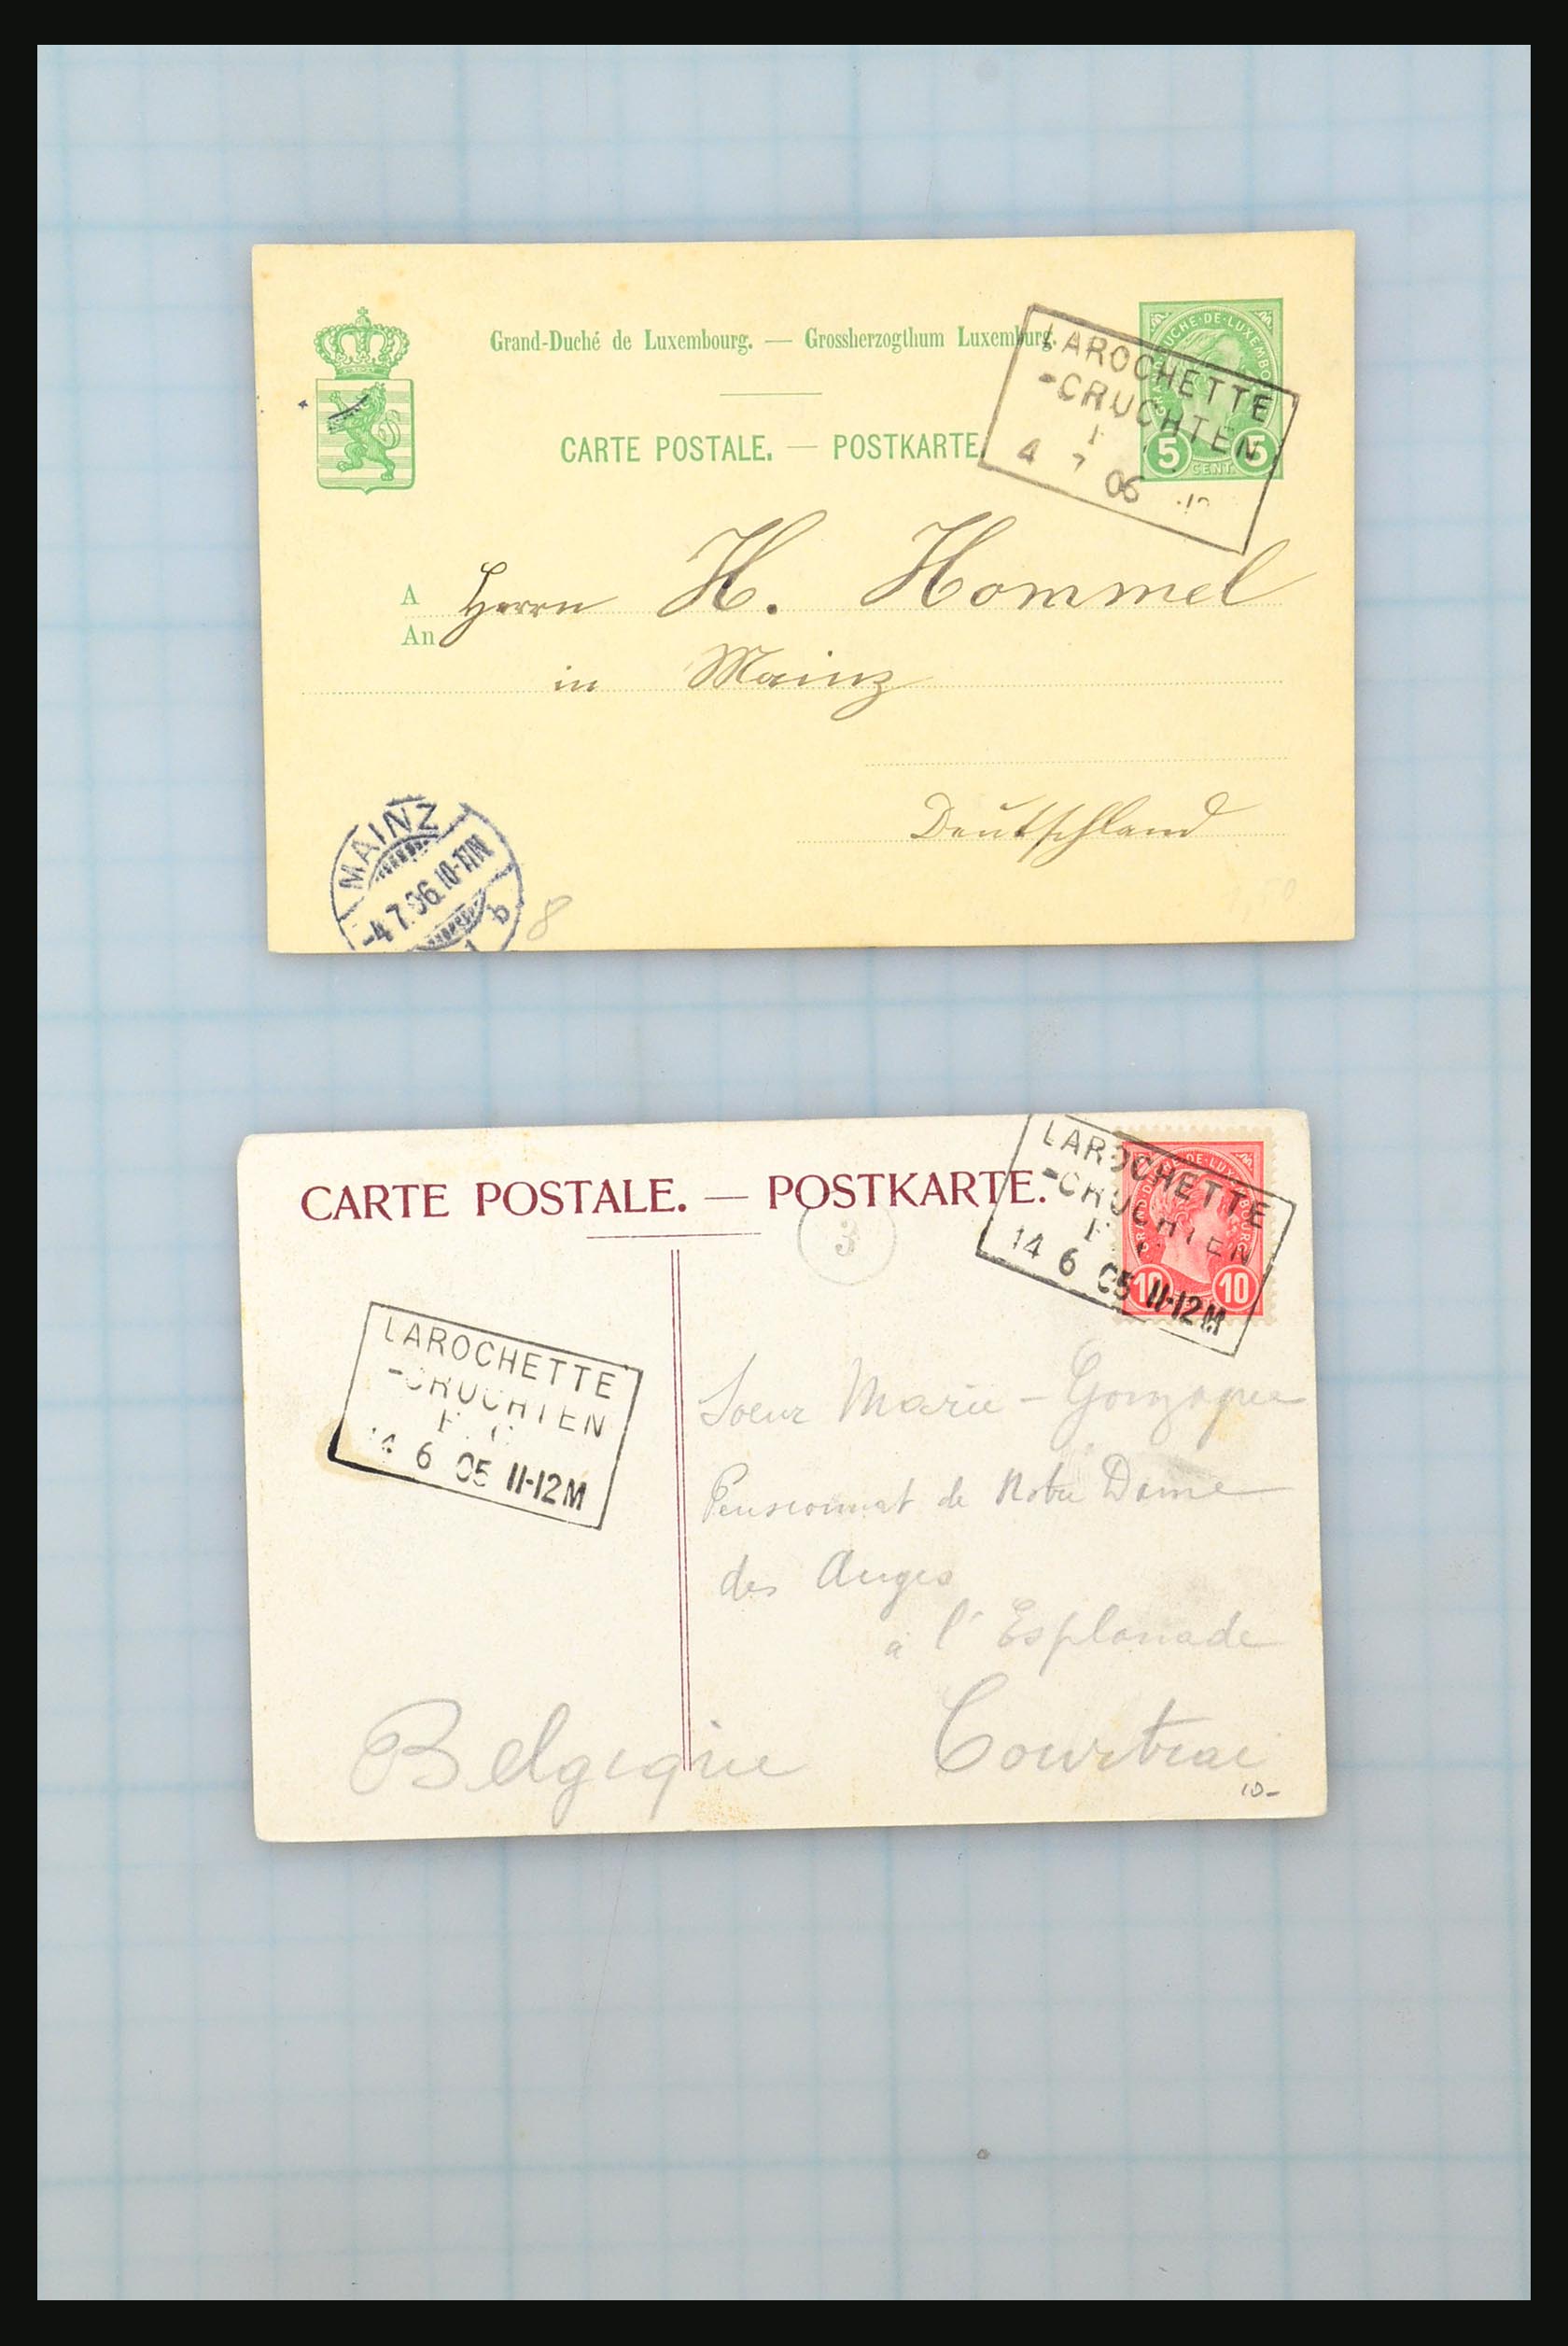 Grand-Duché de Luxembourg. — Grossherzogthum Luxemburg.
CARTE POSTALE. — POSTKARTE
LAROCHETTE
-CRUCHTEN
4 7 06
GRAND-DUCHE-DE-LUXEMBO
5 5
CENT.
A
An
Herrn H. Hommel
in Mainz
Deutschland
MAINZ
-4.7.06.10-11N
1 b
8
CARTE POSTALE. — POSTKARTE.
3
LAROCHETTE
-CRUCHTEN
14 6 05 11-12M
10 10
LAROCHETTE
-CRUCHTEN
14 6 05 11-12M
Soeur Marie - Gonzague
Pensionnat de Notre Dame
des Anges
à l'Esplanade
Belgique Courtrai
10-